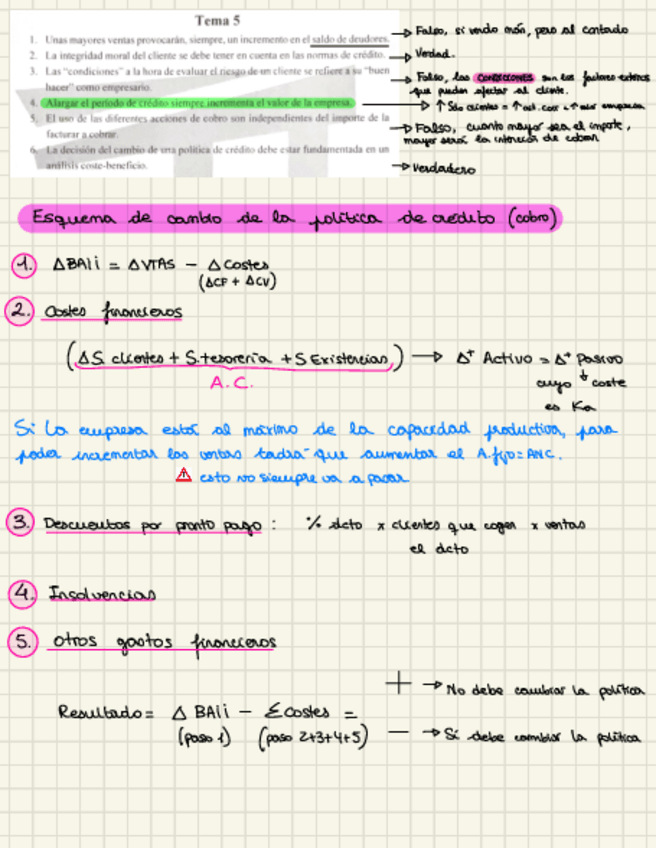 Tema 5
1. Unas mayores ventas provocarán, siempre, un incremento en el saldo de deudores.
→ Falso, si vendo más, pero al contado
2. La integridad moral del cliente se debe tener en cuenta en las normas de crédito.
→ Verdad.
3. Las "condiciones" a la hora de evaluar el riesgo de un cliente se refiere a su "buen
hacer" como empresario.
→ Falso, las condiciones son los factores externos
que pueden afectar al cliente.
4. Alargar el periodo de crédito siempre incrementa el valor de la empresa.
→ ↑ Sdo clientes = ↑
5. El uso de las diferentes acciones de cobro son independientes del importe de la
facturar a cobrar.
→ Falso, cuanto mayor sea el importe,
mayor será la intención de cobrar
6. La decisión del cambio de una política de crédito debe estar fundamentada en un
análisis coste-beneficio.
→ Verdadero
Esquema de cambio de la política de crédito (cobro)
1. ΔBAii = ΔVTAS - Δ Costes
(ΔCF + ΔCV)
2. Costes financieros
(ΔS clientes + S.tesorería + S Existencias) → Δ+ Activo = Δ+ Pasivo
A.C.
cuyo coste
es Ka
Si la empresa está al máximo de la capacidad productiva, para
poder incrementar las ventas tendrá que aumentar el A.fijo = ANC.
⚠ esto no siempre va a pasar
3. Descuentos por pronto pago : % dcto x clientes que cogen x ventas
el dcto
4. Insolvencias
5. otros gastos financieros
+ → No debe cambiar la política
Resultado = Δ BAii - Σ Costes =
(paso 1) (paso 2+3+4+5)
- → Si debe cambiar la política